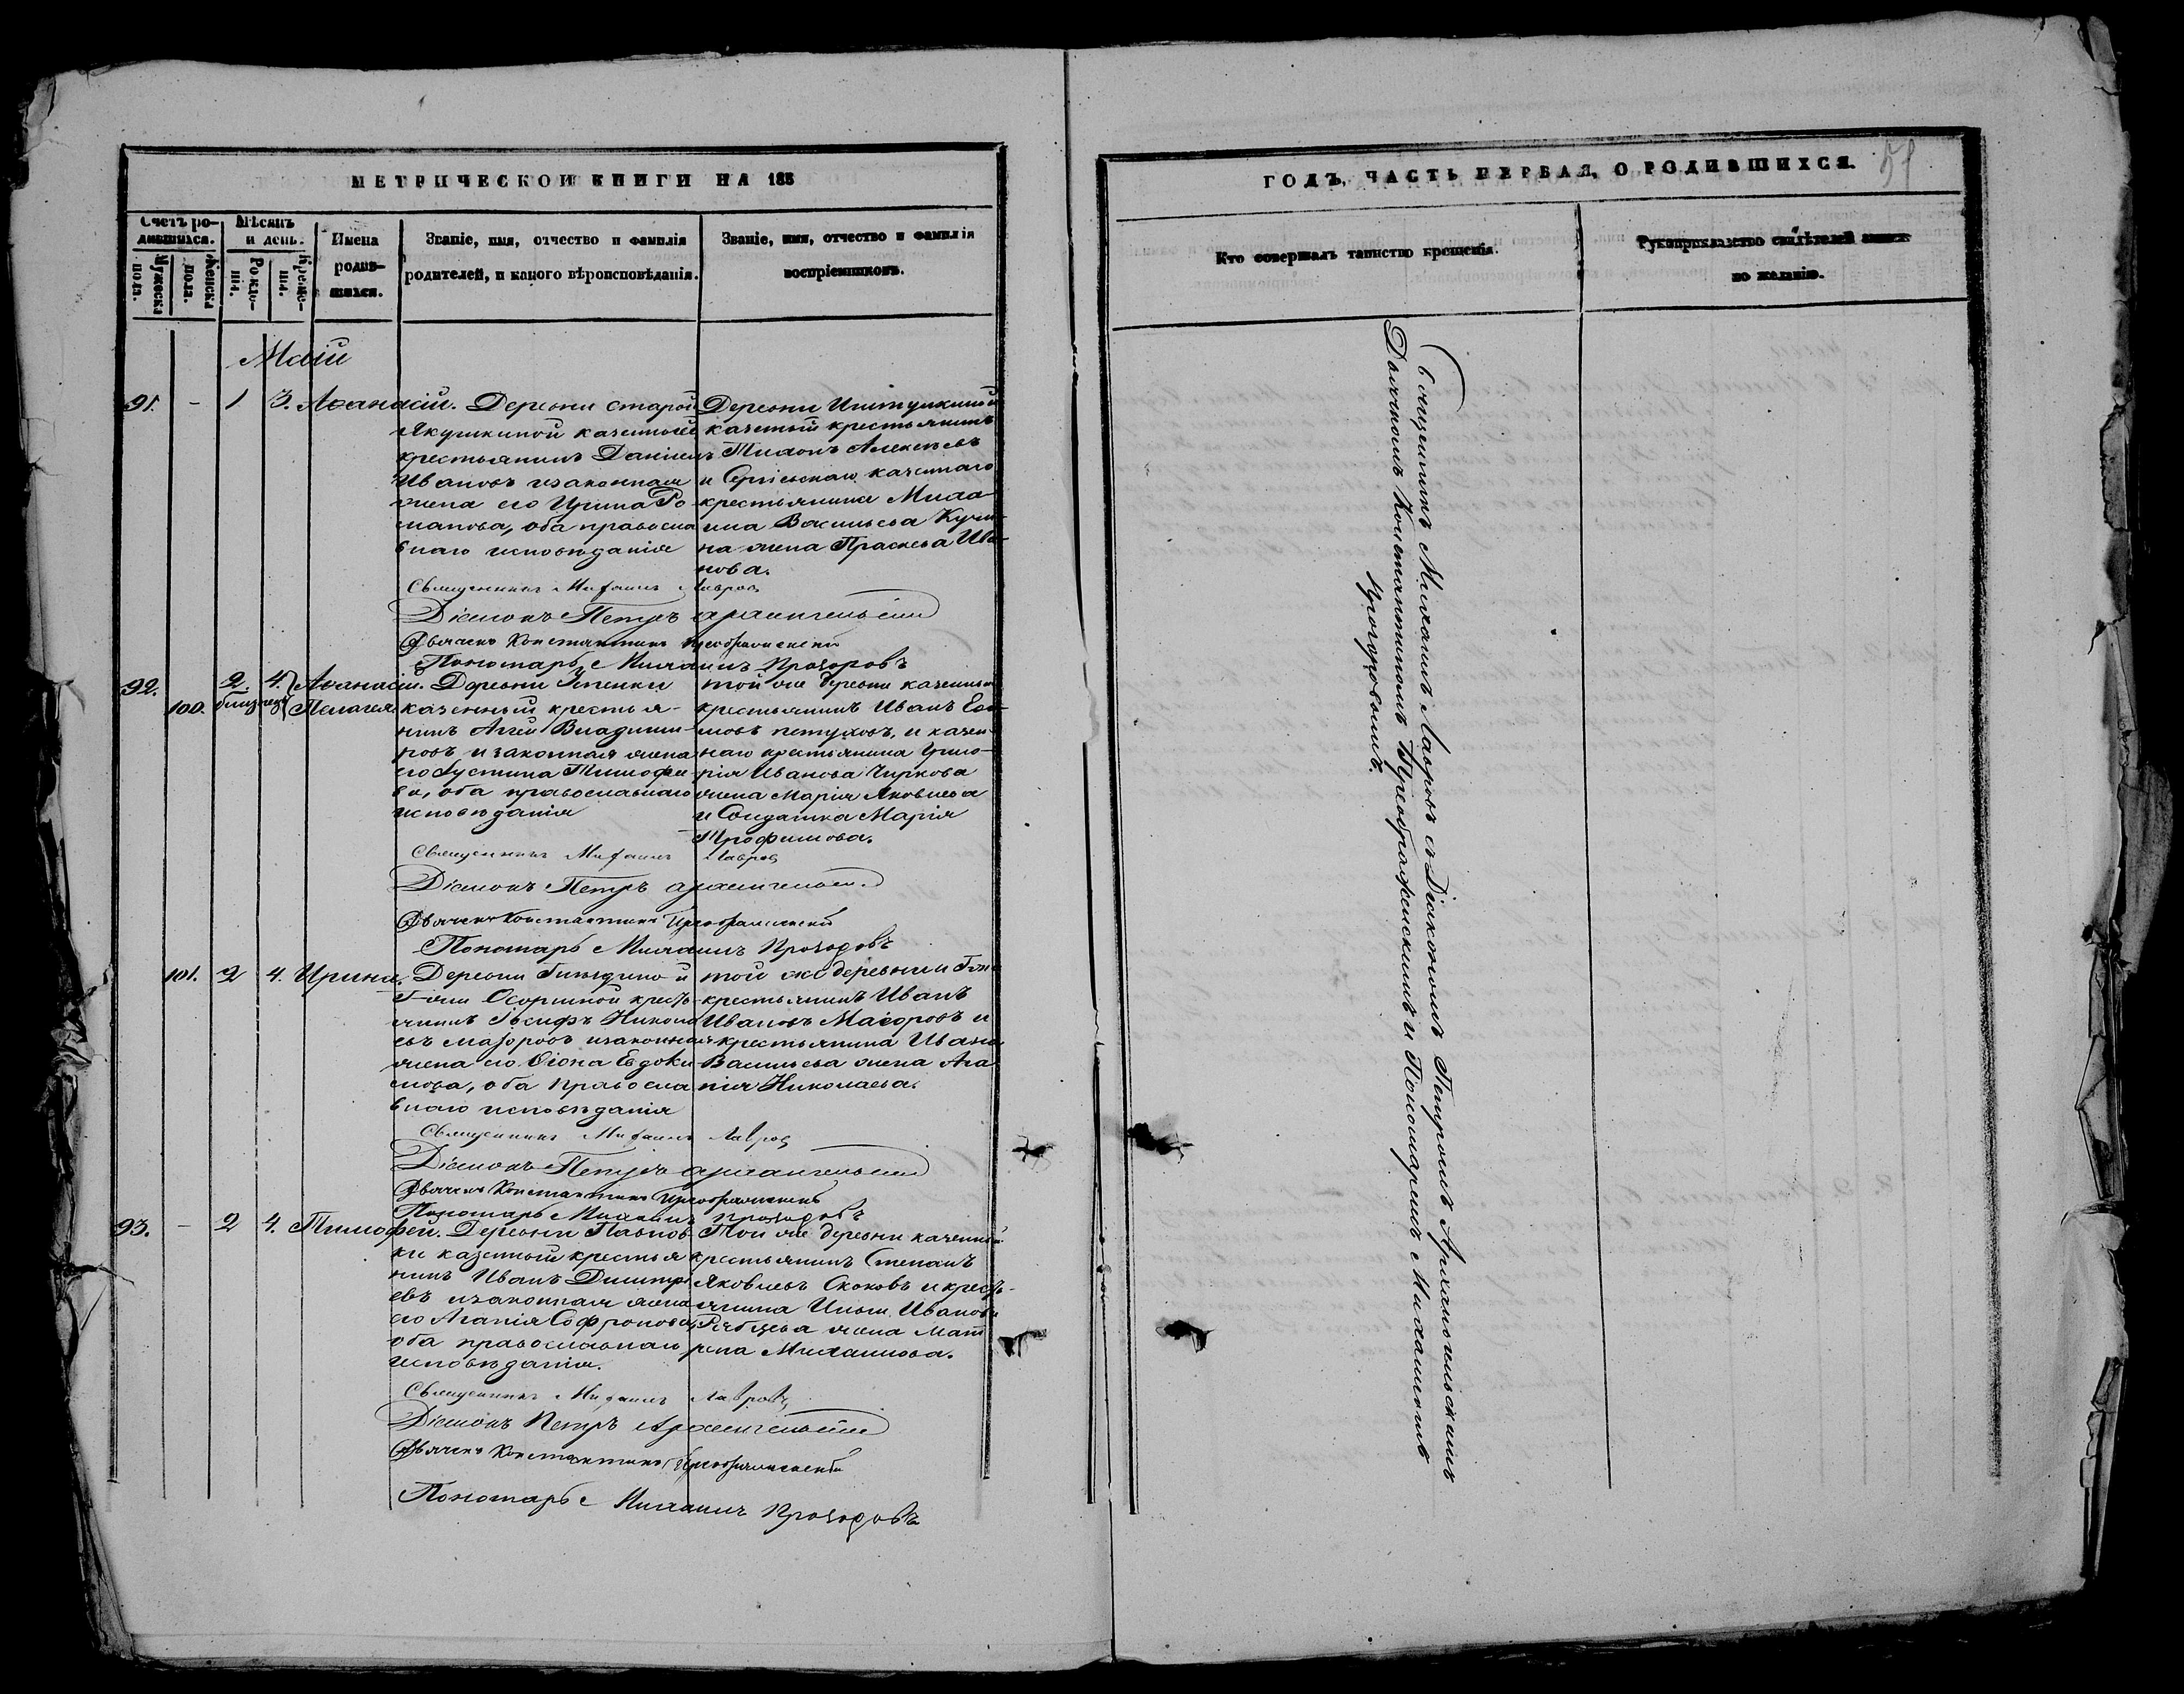 МЕТРИЧЕСКОЙ КНИГИ НА 185
Счетъ ро-
дившихся.
Мужеска
пола.
Женска
пола.
Мѣсяцъ
и день.
Рожде-
нія.
Креще-
нія.
Имена
родив-
шихся.
Званіе, имя, отчество и фамилія
родителей, и какого вѣроисповѣданія.
Званіе, имя, отчество и фамилія
воспріемниковъ.
Маій
91. - 1 3. Аѳанасій.
Деревни старой
Якушкиной казенный
крестьянинъ Даніилъ
Ивановъ и законная
жена его Ирина Ро-
манова, оба правосла
внаго исповѣданія
Деревни
казенный крестьянинъ
Тихонъ Алексѣевъ
и Сергіевскаго казеннаго
крестьянина Миха-
ила Васильева
на жена Праскева Ива-
нова.
Священникъ Михаилъ Лавровъ
Діаконъ Петръ Архангельскій
Дьячекъ Константинъ Преображенскій
Пономарь Михаилъ Прохоровъ
92. 100. 2 4. Аѳанасій.
близнецы Пелагея.
Деревни
казенный крестья-
нинъ Агей
новъ и законная жена
его Устина Тимофее
ва, оба православнаго
исповѣданія
той же деревни казенный
крестьянинъ Иванъ
мовъ Петуховъ, и казен
наго крестьянина Григо-
рія Иванова Чиркова
жена Марія Яковлева
и Солдатка Марія
Трофимова.
Священникъ Михаилъ Лавровъ
Діаконъ Петръ Архангельскій
Дьячекъ Константинъ Преображенскій
Пономарь Михаилъ Прохоровъ
101. 2 4. Ирина.
Деревни
Г-жи крест-
янинъ Іосифъ Никола
евъ Маіоровъ и законная
жена его Ѳіона Евдоки
мова, оба правосла
внаго исповѣданія
той же деревни
крестьянинъ Иванъ
Ивановъ Маіоровъ и
крестьянина Ивана
Васильева жена Ага
пія Николаева.
Священникъ Михаилъ Лавровъ
Діаконъ Петръ Архангельскій
Дьячекъ Константинъ Преображенскій
Пономарь Михаилъ Прохоровъ
93. - 2 4. Тимофей.
Деревни Павлов
ки казенный крестья
нинъ Иванъ Дмитрі
евъ и законная жена
его Агапія Софронова,
оба православнаго
исповѣданія.
Той же деревни казенный
крестьянинъ Степанъ
Яковлевъ Скоковъ и кресть-
янина Ильи Иванова
Рябцева жена Мат
рена Михаилова.
Священникъ Михаилъ Лавровъ
Діаконъ Петръ Архангельскій
Дьячекъ Константинъ Преображенскій
Пономарь Михаилъ Прохоровъ
ГОДЪ, ЧАСТЬ ПЕРВАЯ, О РОДИВШИХСЯ.
Кто совершалъ таинство крещенія.
Рукоприкладство свидѣтелей записи
по желанію.
Священникъ Михаилъ Лавровъ съ Діакономъ Петромъ Архангельскимъ
Дьячкомъ Константиномъ Преображенскимъ и Пономаремъ Михаиломъ
Прохоровымъ.